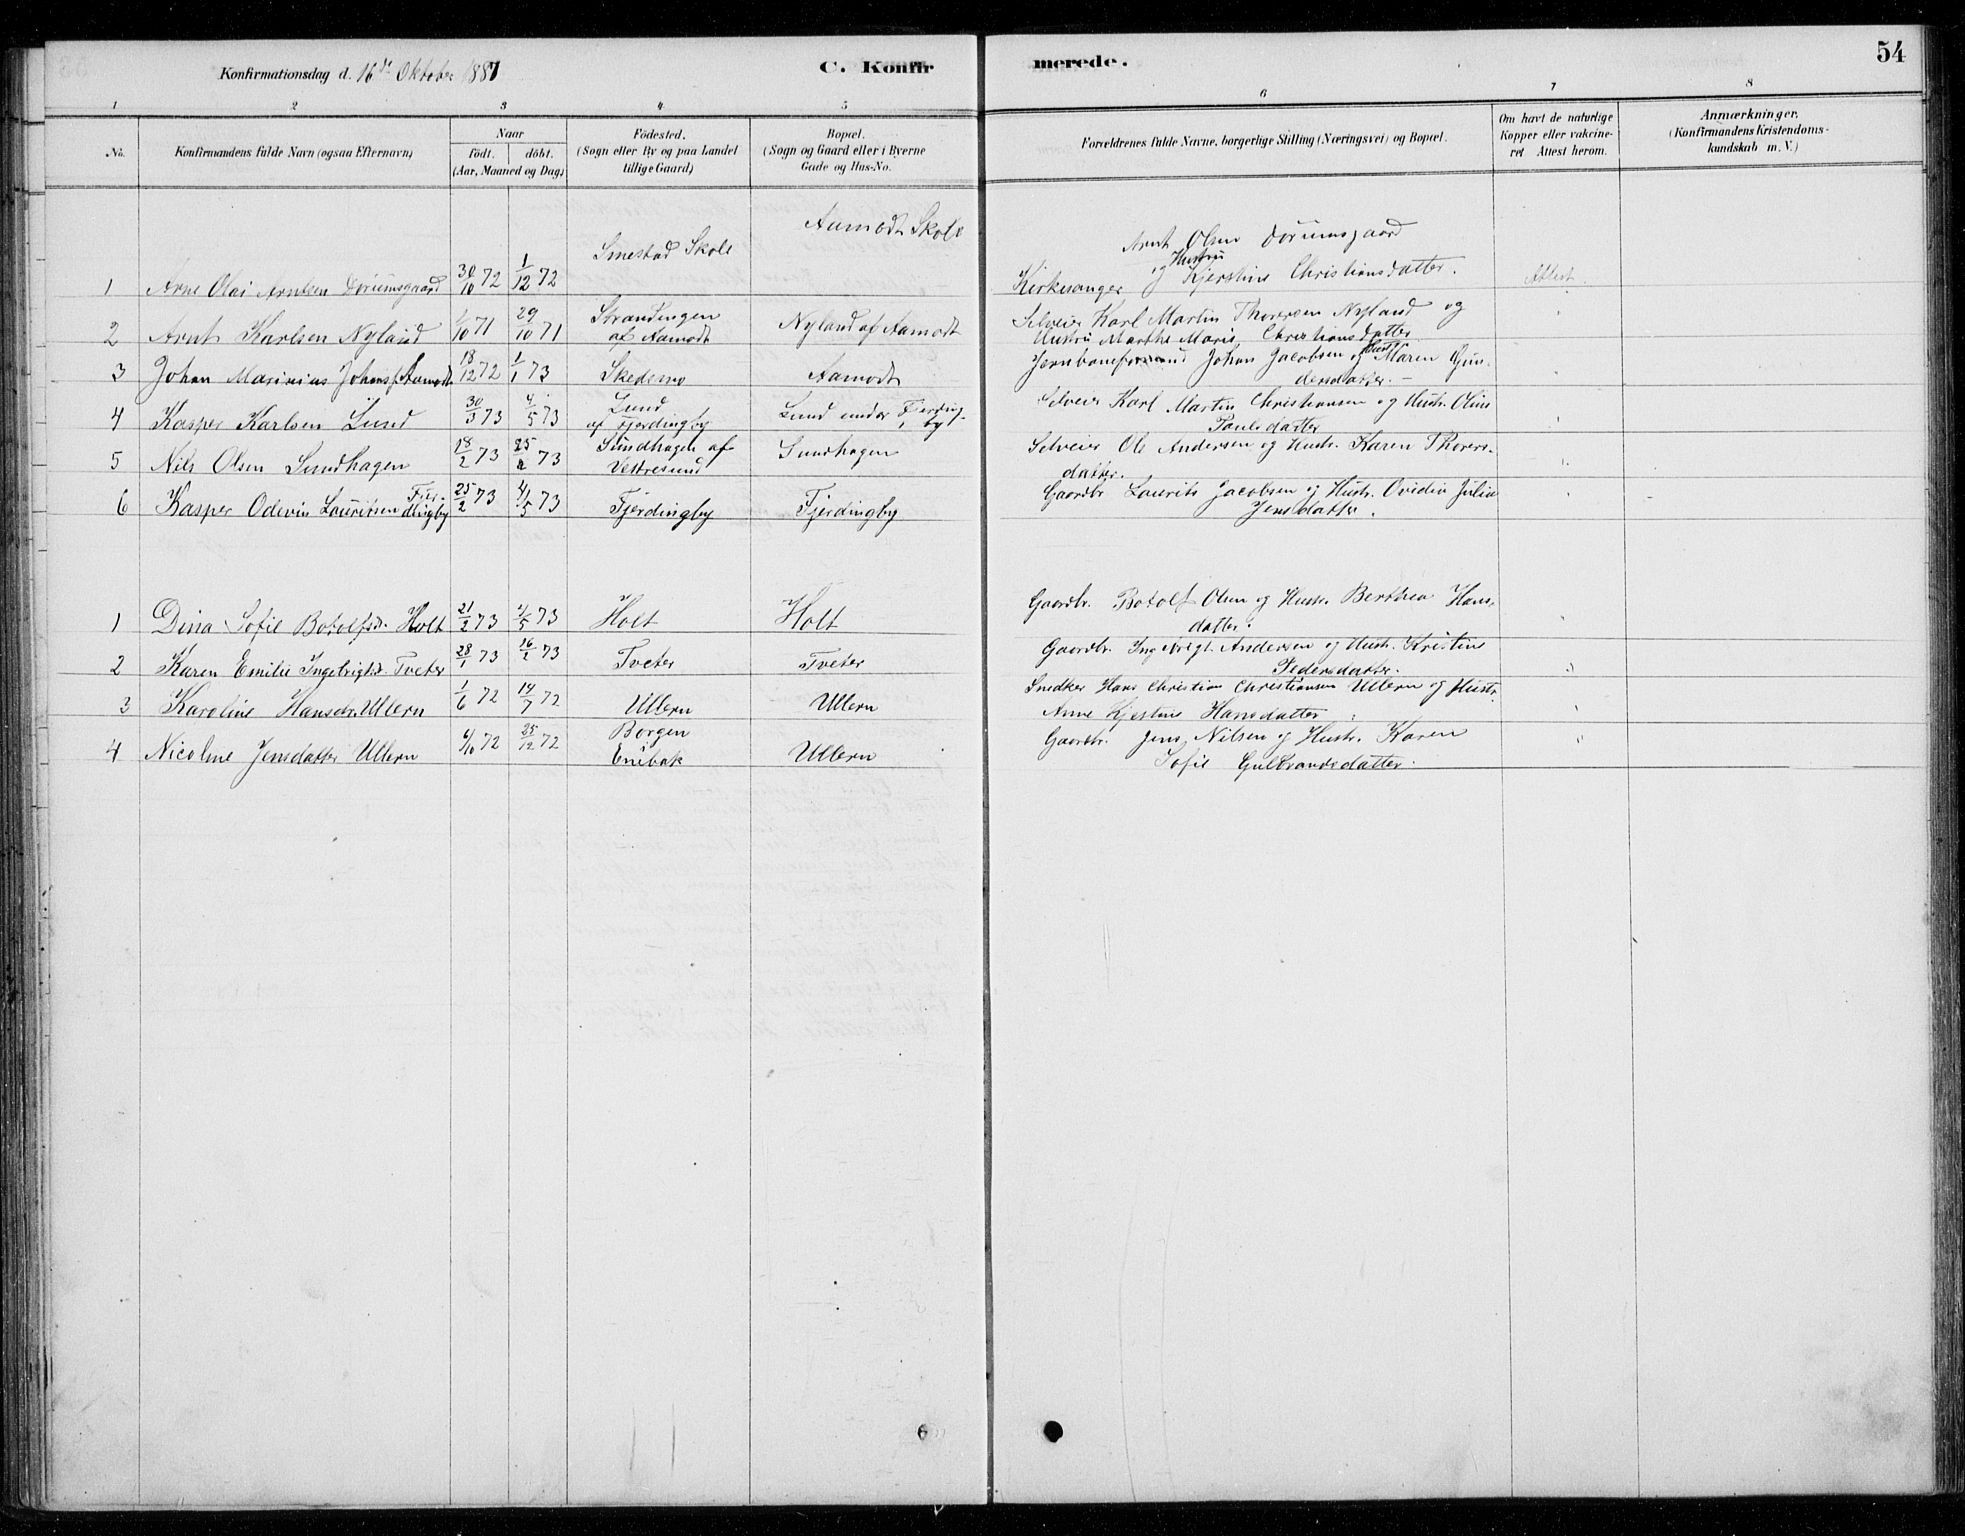 54
Konfirmationsdag d. 16de Oktober 1887
C. Konfirmerede.
1 2 3 4 5 6 7 8
No.
Konfirmandens fulde Navn (ogsaa Efternavn)
Naar
födt. döbt.
(Aar, Maaned og Dag)
Födested.
(Sogn eller By og paa Landet
tillige Gaard)
Bopæl.
(Sogn og Gaard eller i Byerne
Gade og Hus-No.
Forældrenes fulde Navne, borgerlige Stilling (Næringsvei) og Bopæl.
Om havt de naturlige
Kopper eller vakcine-
ret Attest herom.
Anmærkninger.
(Konfirmandens Kristendoms-
kundskab m. V.)
1 Arne Olai Arntsen Dørumsgaard 30/10 72 1/12 72 Smestad Skole Aamodt Skole
Kirkesanger Arnt Olsen Dørumsgaard
og Hustru Kjerstine Christiansdatter. Attest
2 Arnt Karlsen Nyland /10 71 29/10 71 Strandengen
af Aamodt Nyland af Aamodt
Selveier Karl Martin Thoresen Nyland og
Hustru Marthe Marie Christiansdatter "
3 Johan Marinius Johans. Aamodt 18/12 72 1/1 73 Skedsmo Aamodt
Jernbaneformand Johan Jacobsen og Hustr Maren Gun-
dersdatter. - "
4 Kasper Karlsen Lund 30/3 73 4/5 73 Lund
af Fjerdingby Lund under Fjerding-
by
Selveier Karl Martin Christiansen og Hustr. Oline
Paulsdatter "
5 Nils Olsen Sundhagen 18/2 73 25/ 73 Sundhagen af
Vettresund Sundhagen
Selveier Ole Andersen og Hustr. Karen Thores-
datter. "
6 Kasper Odevin Lauritsen Fjer-
dingby 25/2 73 4/5 73 Fjerdingby Fjerdingby
Gaardbr. Laurits Jacobsen og Hustr. Ovidia Julia
Jensdatter. "
1 Dina Sofie Botolfsd. Holt 21/2 73 4/5 73 Holt Holt
Gaardbr. Botolf Olsen og Hustr. Berthea Hans-
datter. "
2 Karen Emilie Ingebrigtsd. Tveter 28/1 73 16/2 73 Tveter Tveter
Gaardbr. Ingebrigt Andersen og Hustr. Kristine
Pedersdatter. "
3 Karoline Hansdr. Ullern 1/6 72 14/7 72 Ullern Ullern
Snedker Hans Christian Christiansen Ullern og Hustr.
Anne Kjestine Hansdatter "
4 Nicoline Jensdatter Ullern 6/10 72 25/12 72 Borgen
Enebak Ullern
Gaardbr. Jens Nilsen og Hustr. Karen
Sofie Gulbrandsdatter. "
6